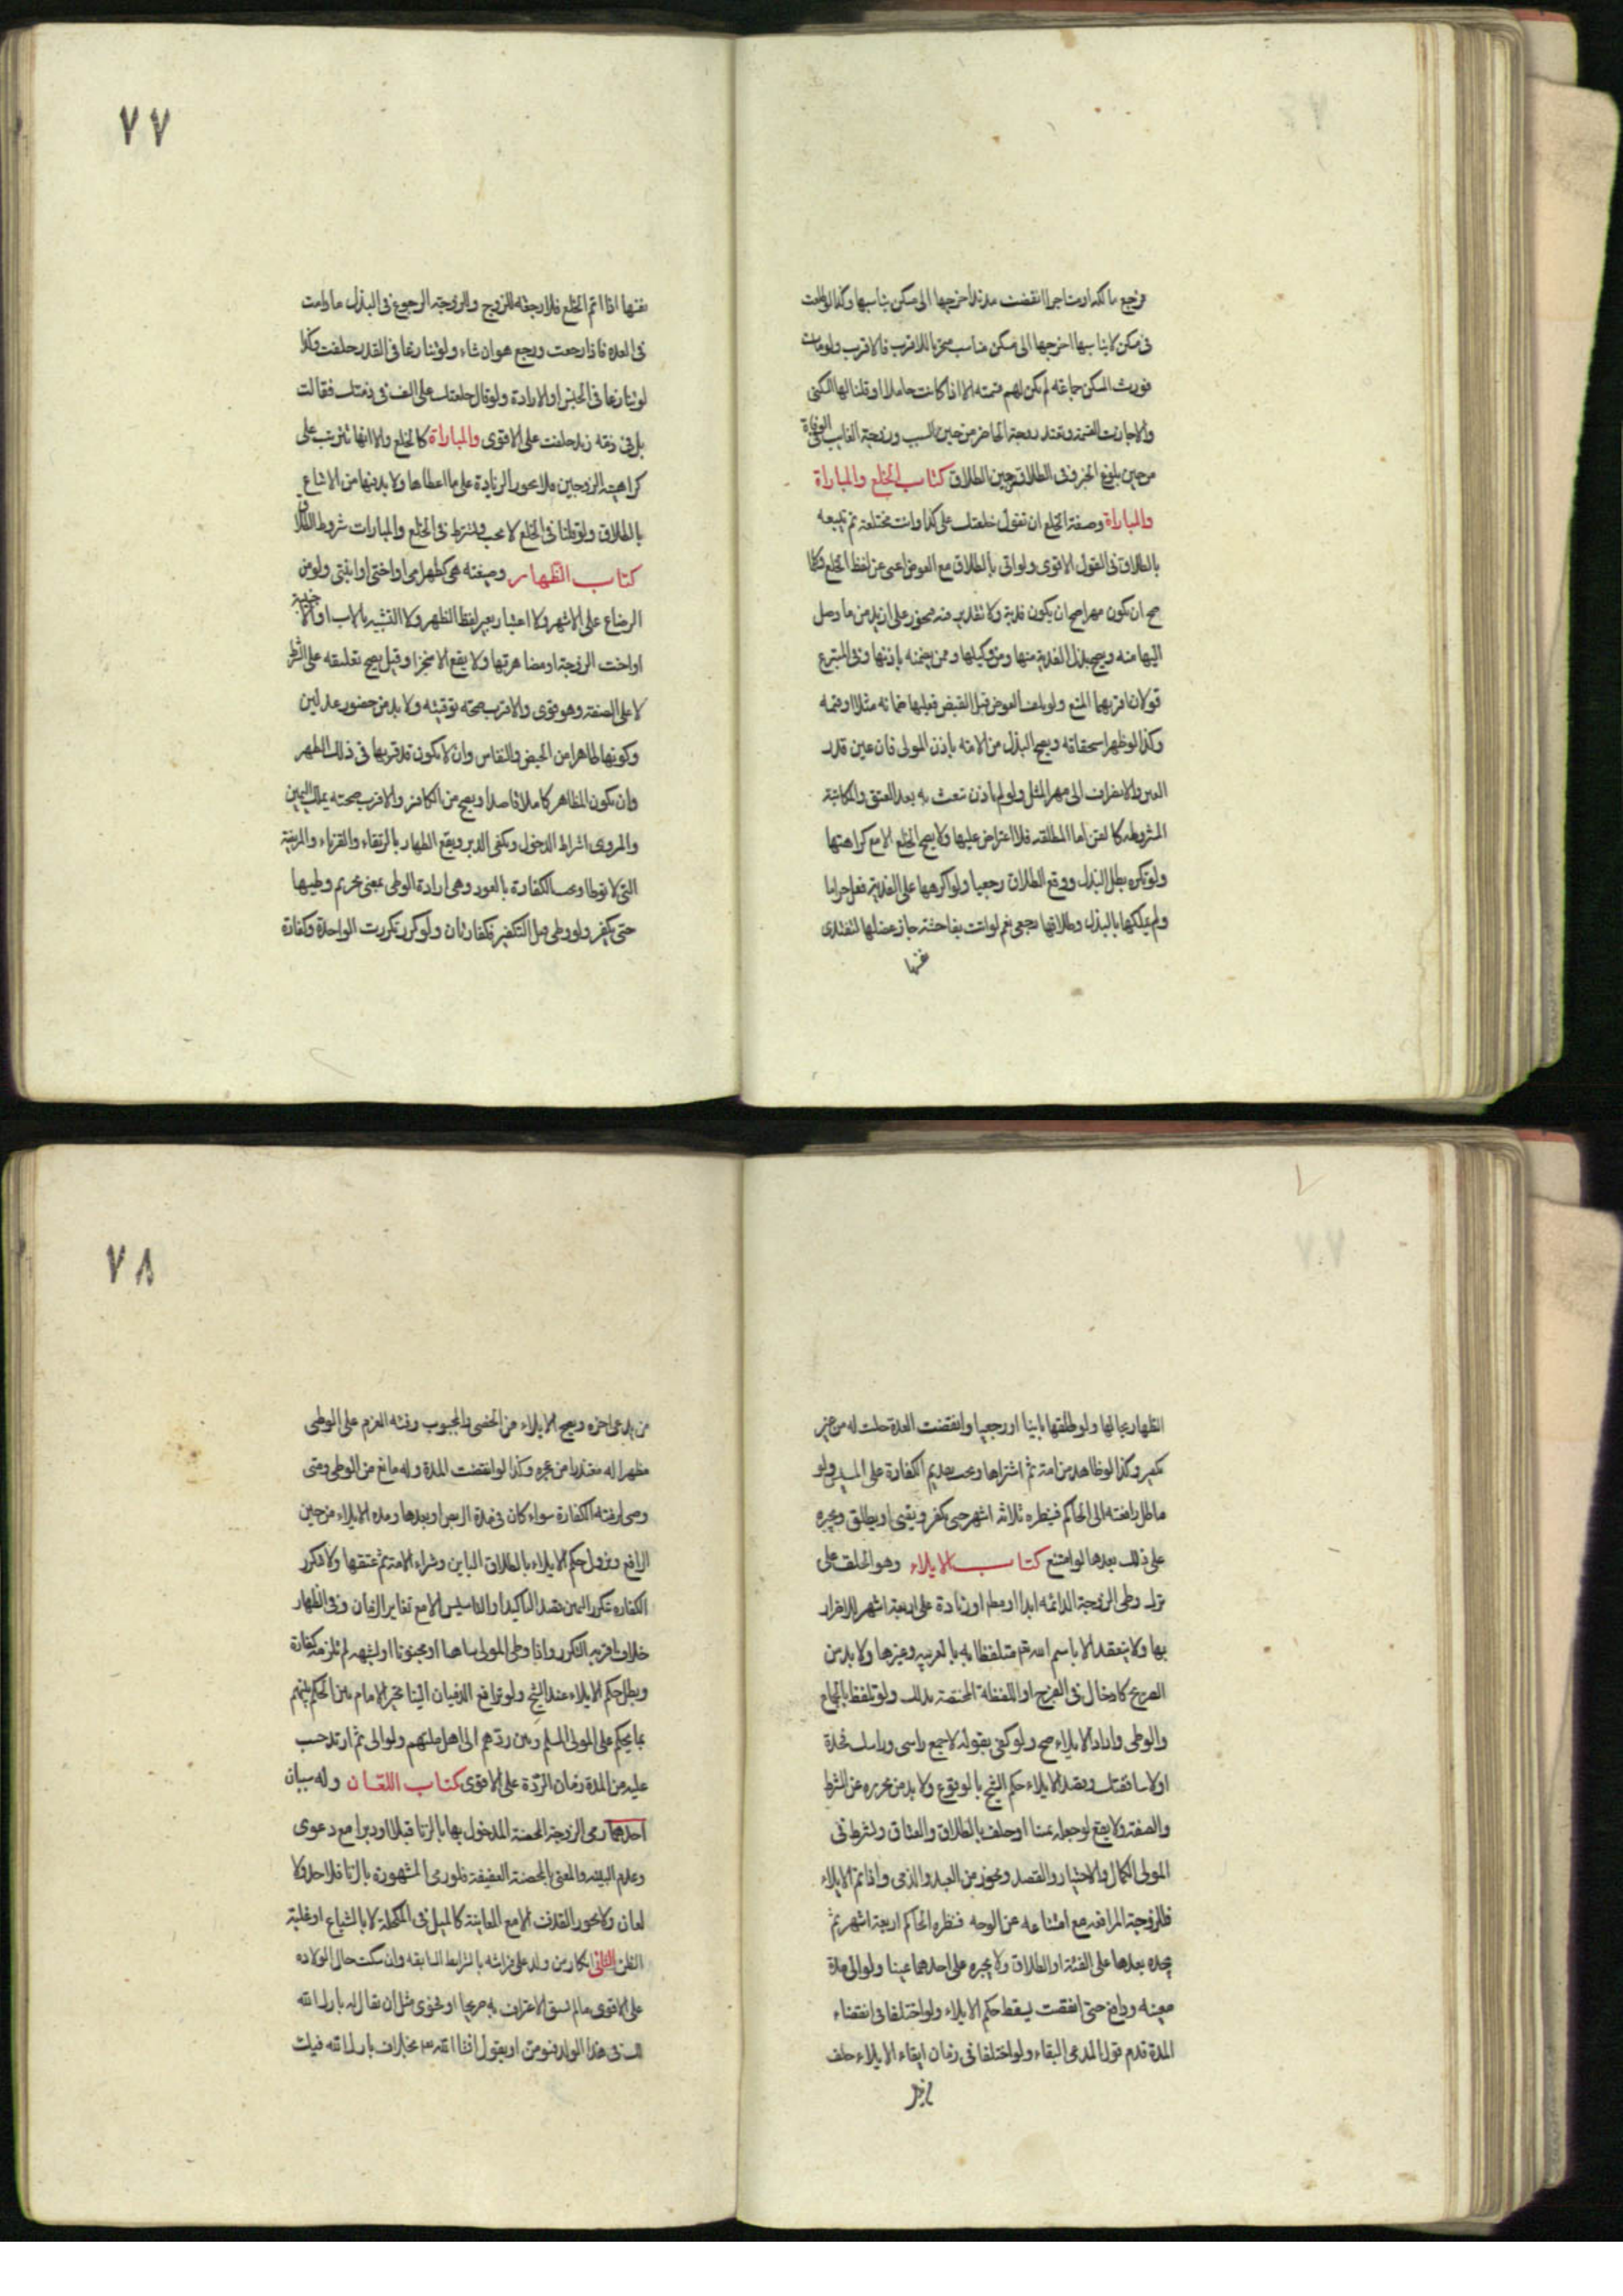 فرجع مالكه او مستاجرا انقضت مدته اخرجها الى مسكن يناسبها وكذا لو طلقت
فى مسكن لا يناسبها اخرجها الى مسكن مناسب متحريا للاقرب فالاقرب ولو مات
فورث المسكن جماعة لم يكن لهم قسمته الا اذا كانت حاملا وقلنا لها السكنى
والا جازت القسمة وتعتد زوجة الحاضر من حين السبب وزوجة الغايب فى الوفاة
من حين بلوغ الخبر وفى الطلاق من حين الطلاق كتاب الخلع والمباراة
والمباراة وصيغة الخلع ان تقول خلعتك على كذا وانت مختلعة ثم يتبعه
بالطلاق فى القول الاقوى ولو اتى بالطلاق مع العوض اغنى عن لفظ الخلع وكلما
صح ان يكون مهرا صح ان يكون فدية ولا تقدير فيه فيجوز على ازيد من ما وصل
اليها منه ويصح بذل الفدية منها ومن وكيلها وممن يضمنه باذنها وفى المتبرع
قولان اقربهما المنع ولو تلف العوض قبل القبض فعليها ضمانه مثلا او قيمة
وكذا لو ظهر استحقاقه ويصح البذل من الامة باذن المولى فان عين قدر
العين والا انصرف الى مهر المثل ولو لم ياذن تبعت به بعد العتق والمكاتبة
المشروطة كالقن اما المطلقة فلا اعتراض عليها ولا يصح الخلع الا مع كراهتها
ولو تكره بطل البذل ووقع الطلاق رجعيا ولو اكرهها على الفدية فعل حراما
ولم يملكها بالبذل وطلاقها رجعى نعم لو اتت بفاحشة جاز عضلها لتفتدى
نفسها
نفسها اذا تم الخلع فلا رجعة للزوج وللزوجة الرجوع فى البذل ما دامت
فى العدة فاذا رجعت ورجع هو ان شاء ولو تنازعا فى القدر حلفت وكذا
لو تنازعا فى الجنس او الارادة ولو قال خلعتك على الف فى ذمتك فقالت
بل فى ذمة زيد حلفت على الاقوى والمباراة كالخلع الا انها تترتب على
كراهية الزوجين فلا يجوز الزيادة على ما اعطاها ولا بد فيها من الاتباع
بالطلاق ولو قلنا فى الخلع لا يجب ويشترط فى الخلع والمبارات شروط الطلاق
كتاب الظهار وصيغته هى كظهر امى او اختى او ابنتى ولو من
الرضاع على الاشهر ولا اعتبار بغير لفظ الظهر ولا التشبيه بالاب او الاجنبية
او اخت الزوجة او مضاهرتها ولا يقع الا منجزا وقيل يصح تعليقه على الشرط
لا على الصفة وهو قوى والاقرب صحة توقيته ولا بد من حضور عدلين
وكونها طاهرا من الحيض والنفاس وان لا يكون قد قربها فى ذلك الطهر
وان يكون المظاهر كاملا قاصدا ويصح من الكافر والاقرب صحته بملك اليمين
والمروى اشتراط الدخول ويكفى الدبر ويقع الظهار بالرتقاء والقرناء والمريضة
التى لا توطا وتجب الكفارة بالعود وهى ارادة الوطى بمعنى تحريم وطيها
حتى يكفر ولو وطى قبل التكفير فكفارتان ولو كرر تكررت الواحدة وكفارة
٧٧
الظهار بحالها ولو طلقها باينا او رجعيا وانقضت العدة حلت له من غير
تكفير وكذا لو ظاهر من امة ثم اشتراها ويجب تقديم الكفارة على المسيس ولو
ماطل رافعته الى الحاكم فينظره ثلاثة اشهر حتى يكفر ويفئ او يطلق ويجبره
على ذلك بعدها لو امتنع كتاب الايلاء وهو الحلف على
ترك وطى الزوجة الدائمة ابدا او مطلقا او زيادة على اربعة اشهر للاضرار
بها ولا ينعقد الا باسم الله تع متلفظا به بالعربيه وغيرها ولا بد من
الصريح كادخال فى الفرج او اللفظة المختصة بذلك ولو تلفظ بالجماع
والوطى واراد الايلاء صح ولو كنى بقوله لا جمع راسى وراسك مخدة
او لا ساقفتك وقصد الايلاء حكم الشيخ بالوقوع ولا بد من تجريده عن الشرط
والصفة ولا يقع لو جعله يمينا او حلف بالطلاق والعتاق ويشترط فى
المولى الكمال والاختيار والقصد ويجوز من العبد والذمى واذا تم الايلاء
فللزوجة المرافعه مع امتناعه عن الوطى فينظره الحاكم اربعة اشهر ثم
يجبره بعدها على الفئة او الطلاق ولا يجبره على احدهما عينا ولو الى مدة
معينه ودافع حتى انقضت يسقط حكم الايلاء ولو اختلفا فى انقضاء
المدة قدم قول المدعى البقاء ولو اختلفا فى زمان ايقاع الايلاء حلف
من يدعى تاخره ويصح الايلاء من الخصى والمجبوب وفئته العزم على الوطى
مظهرا له معتذرا من عجزه وكذا لو انقضت المدة وله مانع من الوطى ومتى
وطى لزمته الكفارة سواء كان فى مدة التربص او بعدها ومدة الايلاء من حين
الترافع ويزول حكم الايلاء بالطلاق الباين وشراء الامة ثم عتقها ولا تتكرر
الكفارة بتكرر اليمين بقصد التاكيد او التاسيس الا مع تغاير الزمان وفى الظهار
خلاف اقربه التكرر واذا وطى المولى ساهيا او مجنونا او لشبهة لم تلزمه كفارة
وبطل حكم الايلاء عند الشيخ ولو ترافع الذميان الينا تخير الامام بين الحكم بينهم
بما يحكم على المولى المسلم وبين ردهم الى اهل ملتهم ولو الى ثم ارتد حسب
عليه من المدة زمان الردة على الاقوى كتاب اللعان وله سببان
احدهما رمى الزوجة المحصنة المدخول بها بالزنا قبلا او دبرا مع دعوى
وعدم البينه والمعنى بالمحصنة العفيفة فلو رمى المشهورة بالزنا فلا حد ولا
لعان ولا يجوز القذف الا مع المعاينة كالميل فى المكحلة لا بالشياع او غلبة
الظن الثانى انكار من ولد على فراشه بالشرايط السابقه وان سكت حال الولاده
على الاقوى ما لم يسبق الاعتراف به صريحا او فحوى مثل ان يقال له بارك الله
لك فى هذا الولد فيومن او يقول انشاء الله بخلاف بارك الله فيك
٧٨